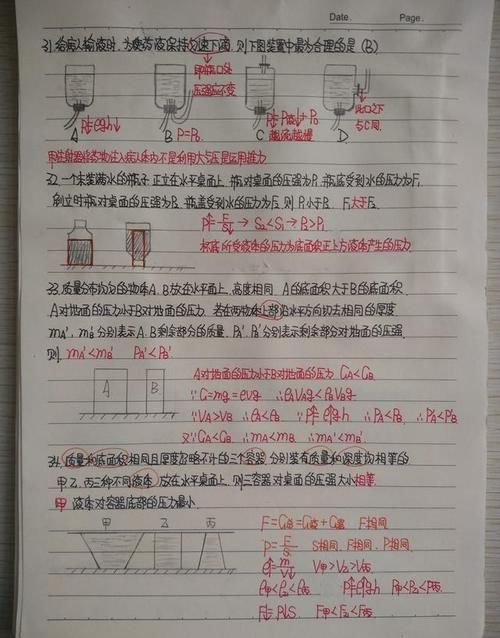 Date. Page.
31.给病人输液时,为使药液保持匀速下滴,则下图装置中最为合理的是 (B)
即瓶口处
压强应不变
A B C D
P=ρgh↓
P=P₀
此口之下
与C同.
用注射器将药物注入病人体内不是利用大气压是运用推力
32.一个未装满水的瓶子 正立在水平桌面上,瓶对桌面的压强为P₁,瓶底受到水的压力为F₁,
倒立时瓶对桌面的压强为P₂ 瓶盖受到水的压力为F₂ 则 P₁小于P₂ F₁大于F₂
P↑=F/S↓ → S₂<S₁ → P₂>P₁
杯底所受液体的压力为底面积正上方液体产生的压力
33.质量分布均匀的物体A、B放在水平面上,高度相同,A的底面积大于B的底面积
A对地面的压力小于B对地面的压力 若在两物体上部沿水平方向切去相同的厚度
mA'、mB'分别表示A、B剩余部分的质量,PA'、PB'分别表示剩余部分对地面的压强
则 mA'<mB' PA'<PB'
A B
A对地面的压力小于B对地面的压力 GA<GB
∵G=mg=ρVg ∴ρAVAg<ρBVBg
∵VA>VB ∴ρA<ρB ∵P↑=ρ↑gh ∴PA<PB ∴PA'<PB'
又∵GA<GB ∴mA<mB ∴mA'<mB'
34.质量和底面积相同且厚度忽略不计的三个容器 分别装有质量和深度均相等的
甲乙、丙三种不同液体,放在水平桌面上,则三容器对桌面的压强大小相等
甲 液体对容器底部的压力最小
甲 乙 丙
F=G总=G液+G容 F相同
P=F/S S相同、F相同、P相同.
ρ↑=m/V↓ V甲>V乙>V丙
ρ甲<ρ乙<ρ丙 P↑=ρ↑gh P甲<P乙<P丙
F↑=P↑S F甲<F乙<F丙